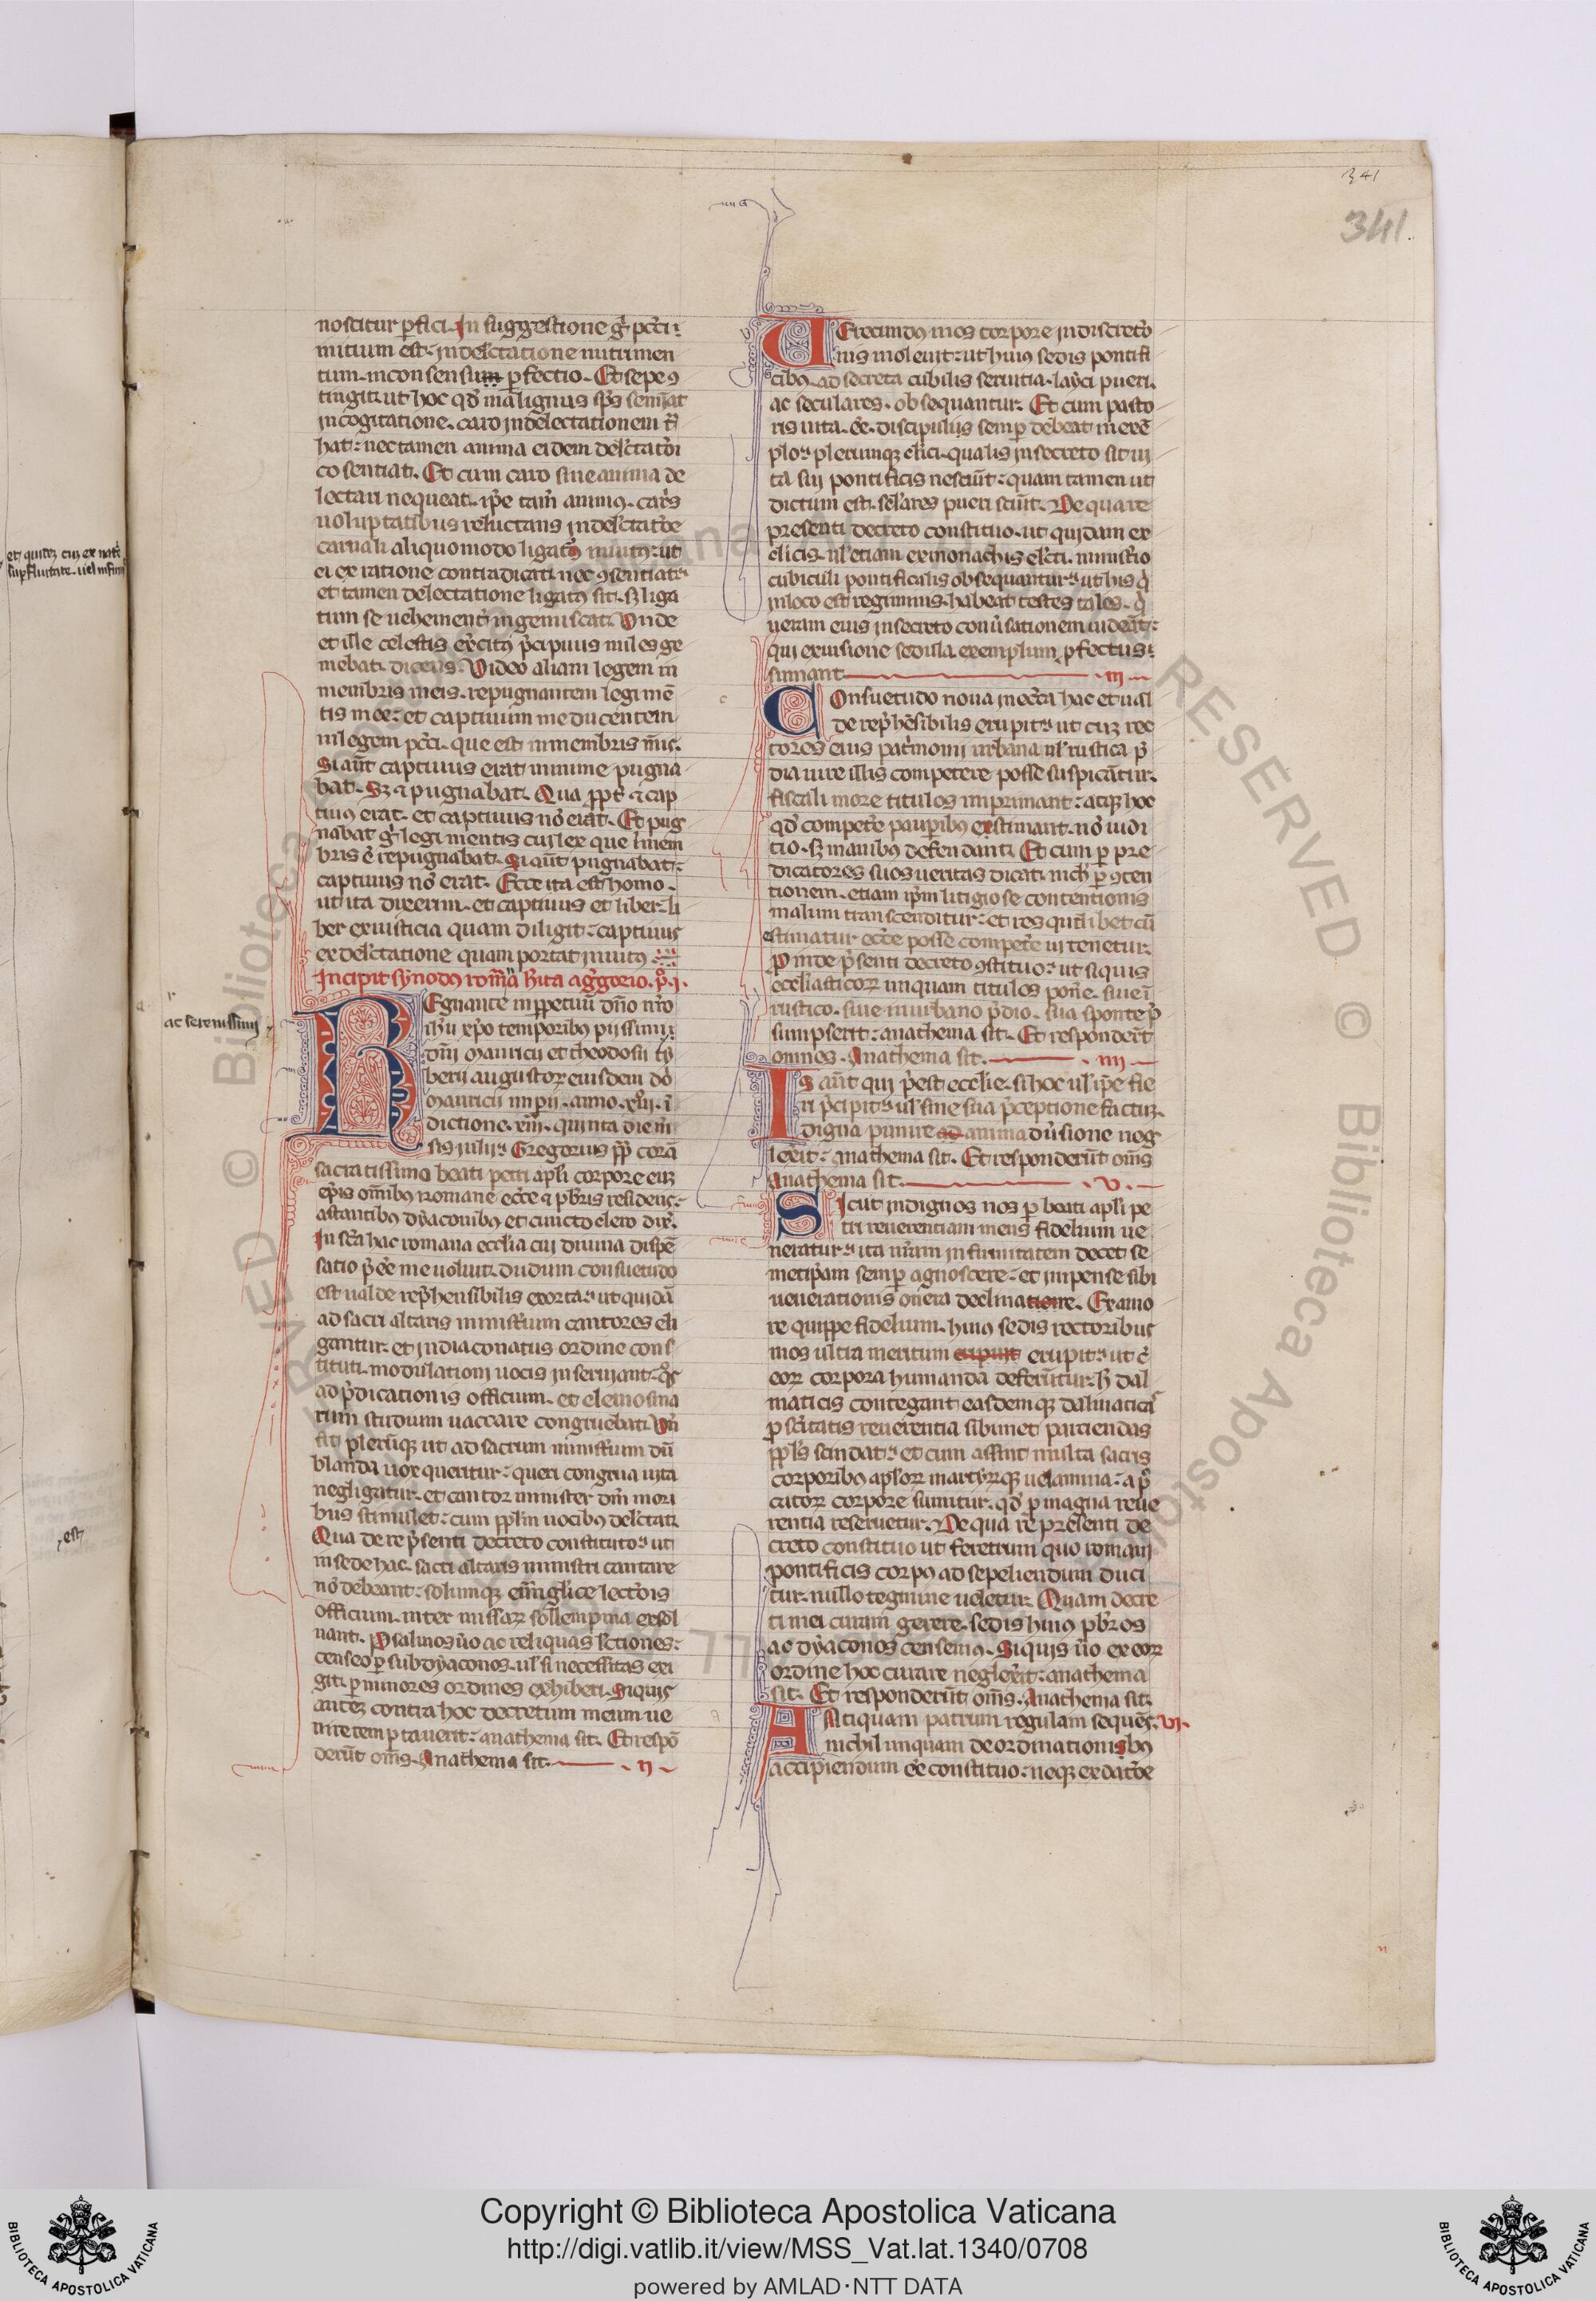 341
341
noscitur p̱fici. In suggestione g̊ pccī
initium est. in delc̄tatione nutrimen
tum. in consensu p̱fectio. Et sepe ꝯ
tingit ut hoc qđ malignus sp̄s seminat
in cogitatione. caro in delectationem t͛
hat: nec tamen anima eidem delc̄tatōi
cōsentiat. Et cum caro sine anima de
lectari nequeat. ip̄e tam̄ animꝰ. carīs
uoluptatibus reluctans in delc̄tatōe
carnali aliquomodo ligatꝰ inuitꝰ: ut
ei ex ratione contradicat. nec ꝯsentiat.
et tamen delectatione ligatꝰ sit. sꝫ liga
tum se uehement̄ ingemiscat. Vnde
et ille celestis exercitꝰ p̄cipuus miles ge
mebat dicens. Video aliam legem in
membris meis. repugnantem legi mē
tis mee: et captiuum me ducentem
in legem pcc̄i. que est in membris meis.
Si aut̄ captiuus erat minime pugna
bat. Sꝫ ⁊ pugnabat. Qua ꝓpt̄ ⁊ cap
tiuꝰ erat. et captiuus nō erat. Et pug
nabat g̊ legi mentis cui lex que ī mem
bris ē repugnabat. Si aut̄ pugnabat:
captiuus nō erat. Ecce ita est homo.
ut ita dixerim. et captiuus et liber. li
ber ex iusticia quam diligit: captiuus
ex delc̄tatione quam portat inuitꝰ.
Incipit sẏnodꝰ romāa h̄ita a g̊gorio. pͦ. ı.
Regnante in ꝑpetuū dn̄o nr̄o
ih̄u xp̄o temporibꝰ piissimi
ac serenissimi
dn̄i Mauricii et theodosii ty
berii augustoꝝ eiusdem dn̄i
Mauricii imꝑii. anno. xiii. ī
dictione. xiii. quinta die mī
sis iulii. Gregorius pp̄ corā
sacratissimo beati petri apl̄i corpore cuꝫ
ep̄is om̄ibꝰ romane ecc̄e ⁊ pb̄ris residens.
astantibus dẏaconibꝰ et cuncto clero dix̄.
In sc̄a hac romana ecclīa cui diuina dispē
satio p̄ee͛ me uoluit. dudum consuetudo
est ualde rep̄hensibilis exorta. ut quidā
ad sacri altaris ministerium cantores eli
gantur. et in diaconatus ordine cons
tituti. modulationi uocis inseruiant. q̊s
ad p̄dicationis officium. et elemosina
rum studium uaccare congruebat. Vn̄
fit plerūqꝫ ut ad sacrum ministerium dū
blanda uox queritur: queri congrua uita
negligatur. et cantor minister dm̄ mori
bus stimulet: cum ppl̄m uocibꝰ delc̄tat.
Qua de re p̄senti decreto constituto. ut
in sede hac. sacri altaris ministri cantare
nō debeant: solumqꝫ eu̅ngl̅ice lectōis
officium. inter missaꝝ sollempnia exsol
uant. Psalmos u̅o ac reliquas lc̄tiones:
censeo ꝑ subdẏaconos. ul̕ si necessitas exi
git. ꝑ minores ordines exhiberi. Siquis
autēꝫ contra hoc decretum meum ue
nire temptauerit: anathema sit. Et respō
derūt om̄s. Anathema sit. . ıı.
Verecundꝰ mos corpore indiscretō
nis inoleuit: ut huiꝰ sedis pontifi
cibꝰ. ad secreta cubilis seruitia. layci pueri.
ac seculares. obsequantur. Et cum pasto
ris uita. ee͛. discipulis semꝑ debeat in exē
plo. plerumqꝫ clici. qualis in secreto sit ui
ta sui pontificis nesciūt: quam tamen ut
dictum est. sclāres pueri sciūt. De qua re
presenti decreto constituo. ut quidam ex
clicis. ul̕ etiam ex monachis elc̄ti. ministerio
cubiculi pontificalis obsequantur. ut hiis q̇
in loco est regiminis. habeat testes tales. q̇
ueram eius in secreto conu̅sationem uideāt:
qui ex uisione sedula. exemplum. ꝓfectus
sumant. . ııı.
Consuetudo noua in ecc̄a hac et ual
de rep̄hēsibilis erupit. ut cuꝫ rec
tores eius pat̕monii urbana ul̕ rustica p̄
dia iure illis competere posse suspicātur.
fiscali more titulos imprimant: atqꝫ hoc
qđ compete͛ pauꝑibꝰ existimant. nō iudi
tio. sꝫ manibꝰ defendant. Et cum ꝑ pre
dicatores suos ueritas dicat. nich̕ ꝑ ꝯten
tionem. etiam ip̄m litigiose contentionis
malum transcenditur: et res quelibet cū
estimatur ecc̄e posse compete͛ ui tenetur.
Proinde p̄senti decreto ꝯstituo. ut siquis
eccl̄iasticoꝝ unquam titulos pone͛. siue ī
rustico. siue in urbano p̄dio. sua sponte p̄
sumpserit: anathema sit. Et responder̄t
omnes. Anathema sit. . ıııı.
Is aut̄ qui p̄est ecclīe. si hoc ul̕ ip̄e fie
ri p̄cipit. ul̕ sine sua p̄ceptione factuꝫ.
digna punire ad animaduersione neg
lexerit: anathema sit. Et responderūt om̄s
Anathema sit. . v.
Sicut indignos nos ꝑ beati apl̄i pe
tri reuerentiam mens fidelium ue
neratur. ita nr̄am infirmitatem decet se
metip̄am semꝑ agnoscere: et impense sibi
uenerationis onera declinare. Ex amo
re quippe fidelium. huiꝰ sedis rectoribus
mos ultra meritum erupit erupit. ut cū
eoꝝ corpora humanda deferūtur: h̕ dal
maticis contegant. easdemqꝫ dalmaticas
ꝑ sc̄itatis reuerentia sibimet partiendas
ppl̄s scindat. et cum assint multa sacris
corporibꝰ apl̄oꝝ martyꝝqꝫ uelamina: a p̄
catoꝝ corpore sumitur. qđ ꝑ magna reue
rentia reseruetur. De qua re presenti de
creto constituo ut feretrum quo romani
pontificis corpꝰ ad sepeliendum duci
tur. nullo tegmine ueletur. Quam decre
ti mei curam gerere. sedis huiꝰ pb̄ros
ac dẏaconos censemꝰ. Siquis u̅o ex eoꝝ
ordine hoc curare neglex̄it: anathema
sit. Et responderūt om̄s. Anathema sit.
Antiquam patrum regulam sequēs. vı.
nichil unquam de ordinationibꝰ
accipiendum ee͛ constituo: neqꝫ ex datōe
et quiteꝫ cuꝫ ex natē
suꝑfluitate. uel infirmi
est
Copyright © Biblioteca Apostolica Vaticana
http://digi.vatlib.it/view/MSS_Vat.lat.1340/0708
powered by AMLAD·NTT DATA
BIBLIOTECA APOSTOLICA VATICANA
BIBLIOTECA APOSTOLICA VATICANA